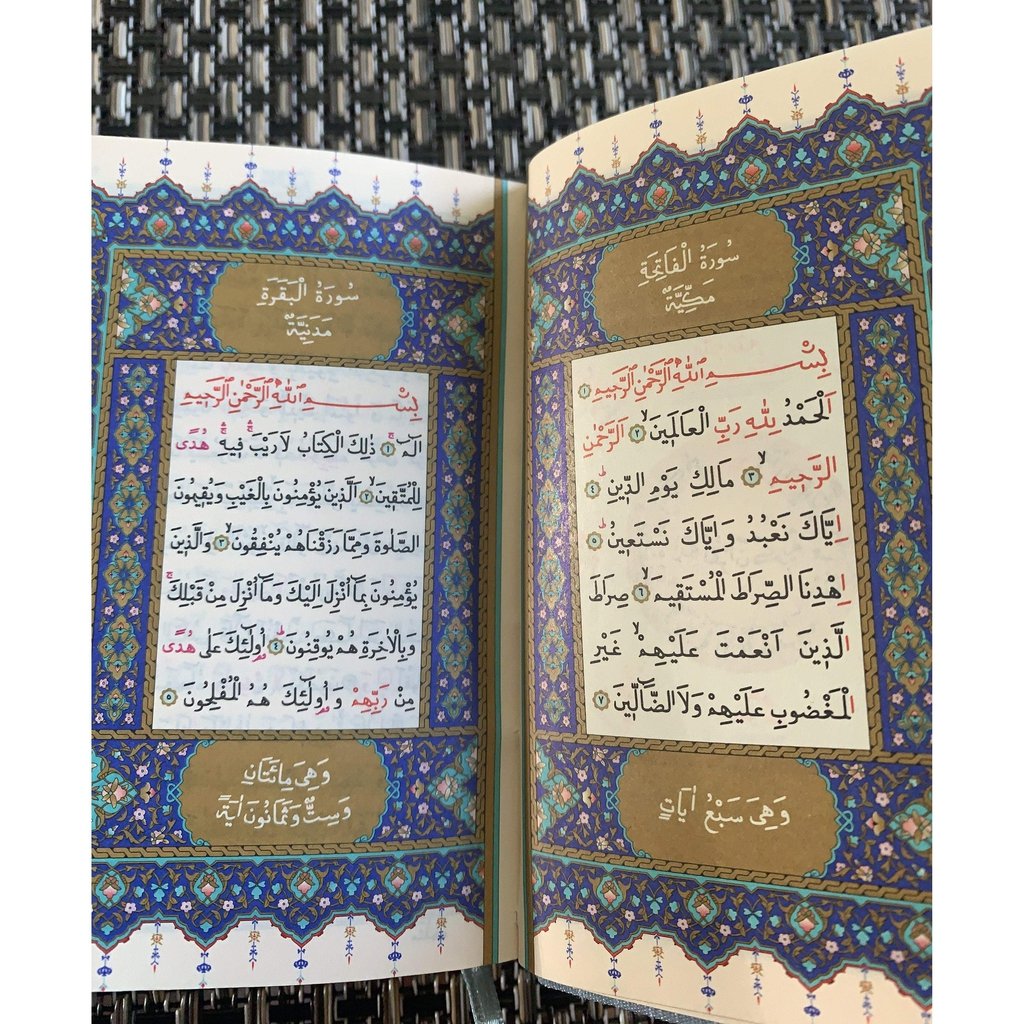 سُورَةُ الْفَاتِحَةِ
مَكِّيَّةٌ
بِسْمِ اللّٰهِ الرَّحْمٰنِ الرَّحِيمِ ﴿١﴾
اَلْحَمْدُ لِلّٰهِ رَبِّ الْعَالَمِينَۙ ﴿٢﴾ اَلرَّحْمٰنِ
الرَّحِيمِۙ ﴿٣﴾ مَالِكِ يَوْمِ الدِّينِۜ ﴿٤﴾
اِيَّاكَ نَعْبُدُ وَاِيَّاكَ نَسْتَعِينُۜ ﴿٥﴾
اِهْدِنَا الصِّرَاطَ الْمُسْتَقِيمَۙ ﴿٦﴾ صِرَاطَ
الَّذِينَ اَنْعَمْتَ عَلَيْهِمْۙ غَيْرِ
الْمَغْضُوبِ عَلَيْهِمْ وَلَا الضَّٓالِّينَ ﴿٧﴾
وَهِيَ سَبْعُ اٰيَاتٍ
سُورَةُ الْبَقَرَةِ
مَدَنِيَّةٌ
بِسْمِ اللّٰهِ الرَّحْمٰنِ الرَّحِيمِ
الٓمٓۚ ﴿١﴾ ذٰلِكَ الْكِتَابُ لَا رَيْبَۚۛ فِيهِۚۛ هُدًى
لِلْمُتَّقِينَۙ ﴿٢﴾ اَلَّذِينَ يُؤْمِنُونَ بِالْغَيْبِ وَيُقِيمُونَ
الصَّلٰوةَ وَمِمَّا رَزَقْنَاهُمْ يُنْفِقُونَۙ ﴿٣﴾ وَالَّذِينَ
يُؤْمِنُونَ بِمَٓا اُنْزِلَ اِلَيْكَ وَمَٓا اُنْزِلَ مِنْ قَبْلِكَۚ
وَبِالْاٰخِرَةِ هُمْ يُوقِنُونَۜ ﴿٤﴾ اُو۬لٰٓئِكَ عَلٰى هُدًى
مِنْ رَبِّهِمْ وَاُو۬لٰٓئِكَ هُمُ الْمُفْلِحُونَ ﴿٥﴾
وَهِيَ مِائَتَانِ
وَسِتٌّ وَثَمَانُونَ اٰيَةً